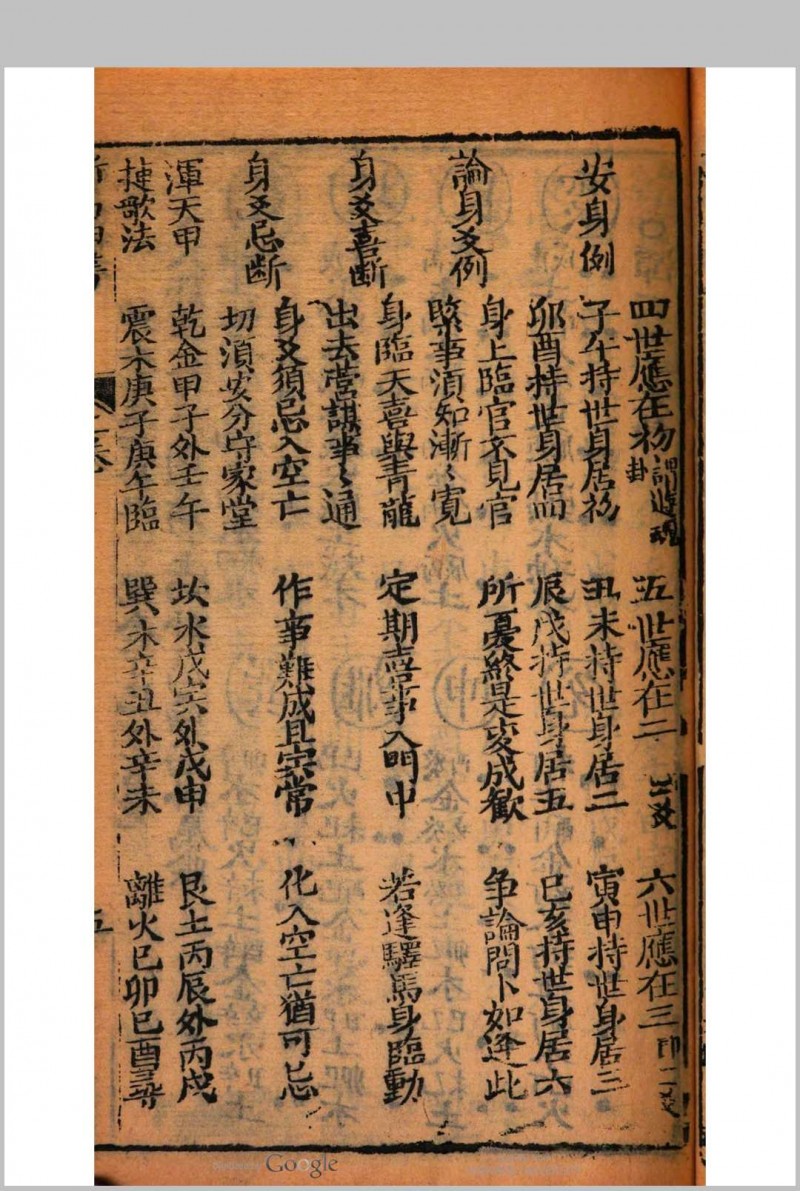 四世應在初謂遊魂卦　五世應在二　三爻　六世應在三　即二爻
安身例　子午持世身居初　丑未持世身居二　寅申持世身居三
卯酉持世身居四　辰戌持世身居五　巳亥持世身居六
論身爻例　身上臨官不見官　所憂終是变成歡　爭論問卜如逢此
緊事須知漸〻寬
身爻喜断　身臨天喜與青龍　定期喜事入門中　若逢驛馬身臨動
出去营謀事〻通
身爻忌断　身爻須忌入空亡　作事難成且突常　化入空亡猶可忌
切須安分守家堂
渾天甲　乾金甲子外壬午　坎水戊寅外戊申　艮土丙辰外丙戌
捷歌法　震木庚子庚午臨　巽木辛丑外辛未　離火巳卯巳酉尋
五
Google